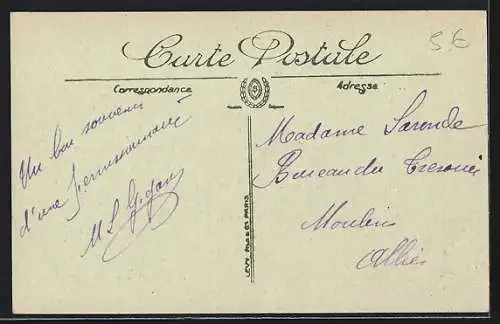 Carte Postale
Correspondance
Adresse
5.6
Un bon souvenir
d'une
M L Gigan
LEVY FILS & CIE PARIS
Madame Saronde
Bureau du Tresorier
Moulins
Allier